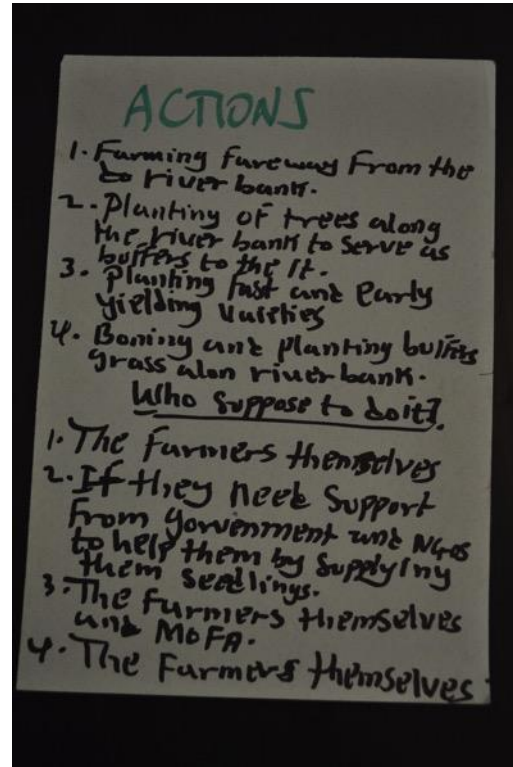 ACTIONS
1. Farming fareway From the
to river bank.
2. Planting of trees along
the river bank to serve as
buffers to the it.
3. Planting fast and early
yielding Vaieties
4. Boning and planting buffers
grass alon river bank.
Who Suppose to do it?
1. The farmers themselves
2. If they need Support
From gorvenment and NGOs
to help them by Supplying
them seedlings.
3. The farmers themselves
and MoFA.
4. The Farmers themselves